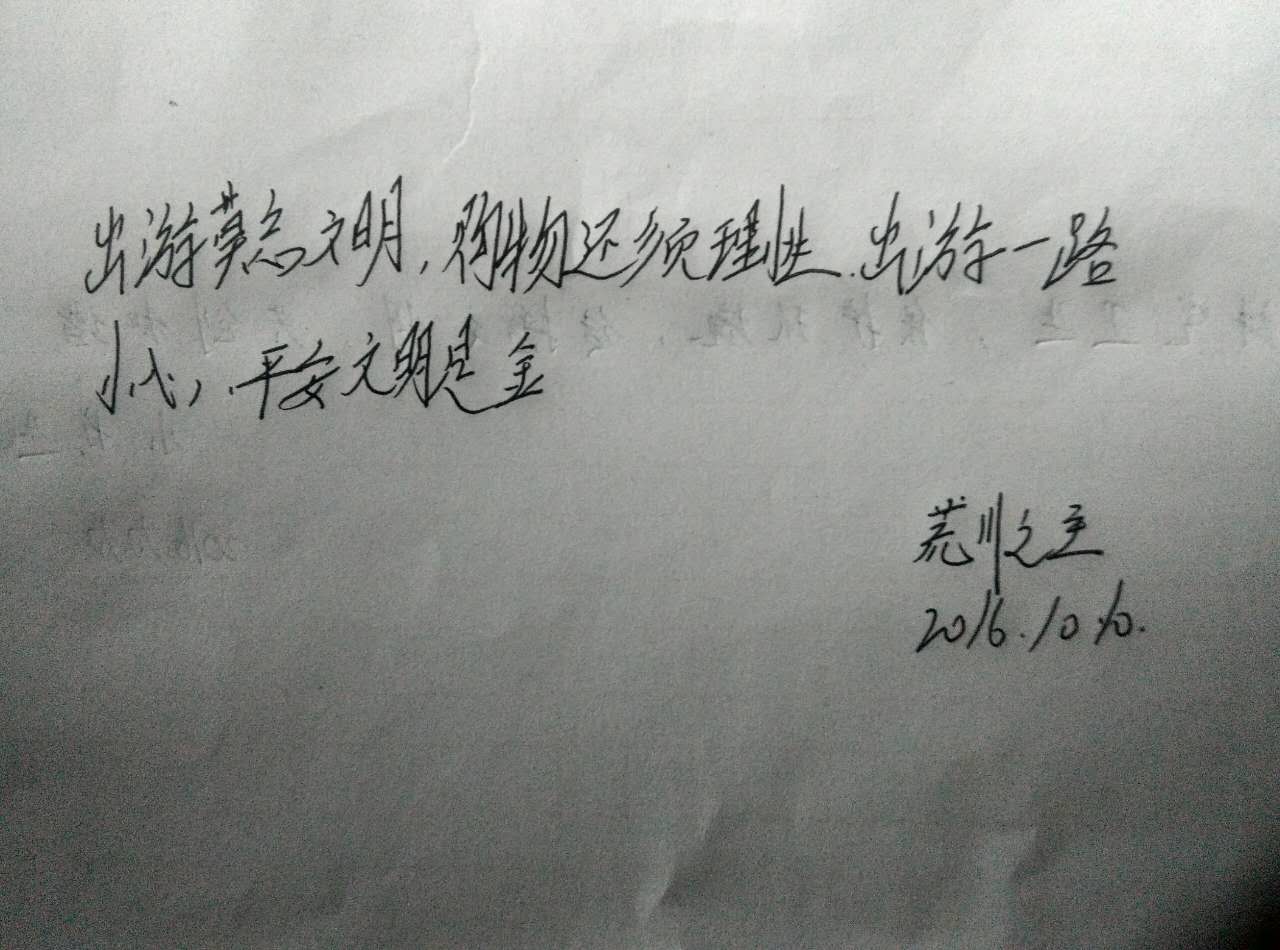 出游莫忘文明,购物还须理性.出游一路
小心,平安文明是金
荒川之主
2016.10.10.